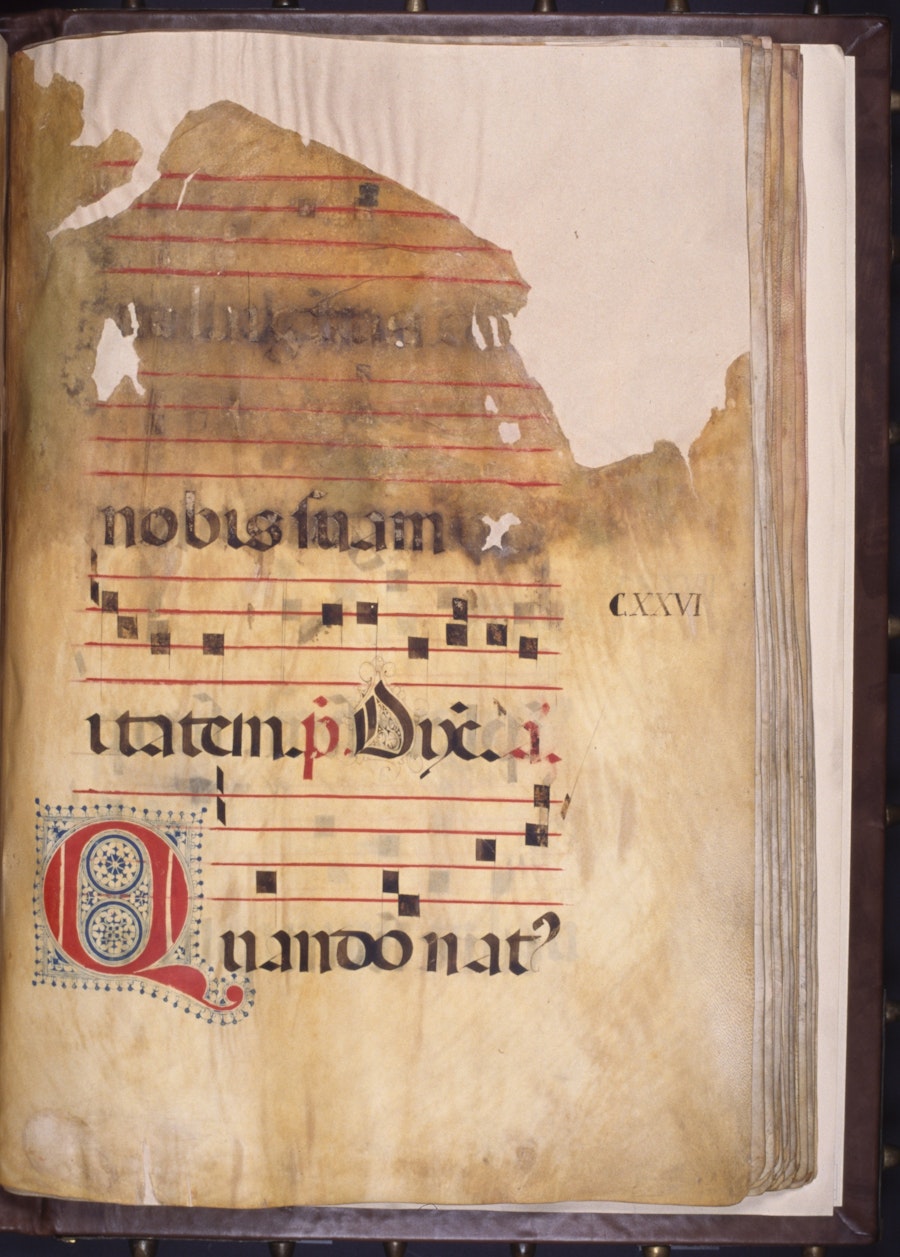 nobis suam
CXXVI
itatem. p̄. Dix̄. a͂.
Quando nat⁹